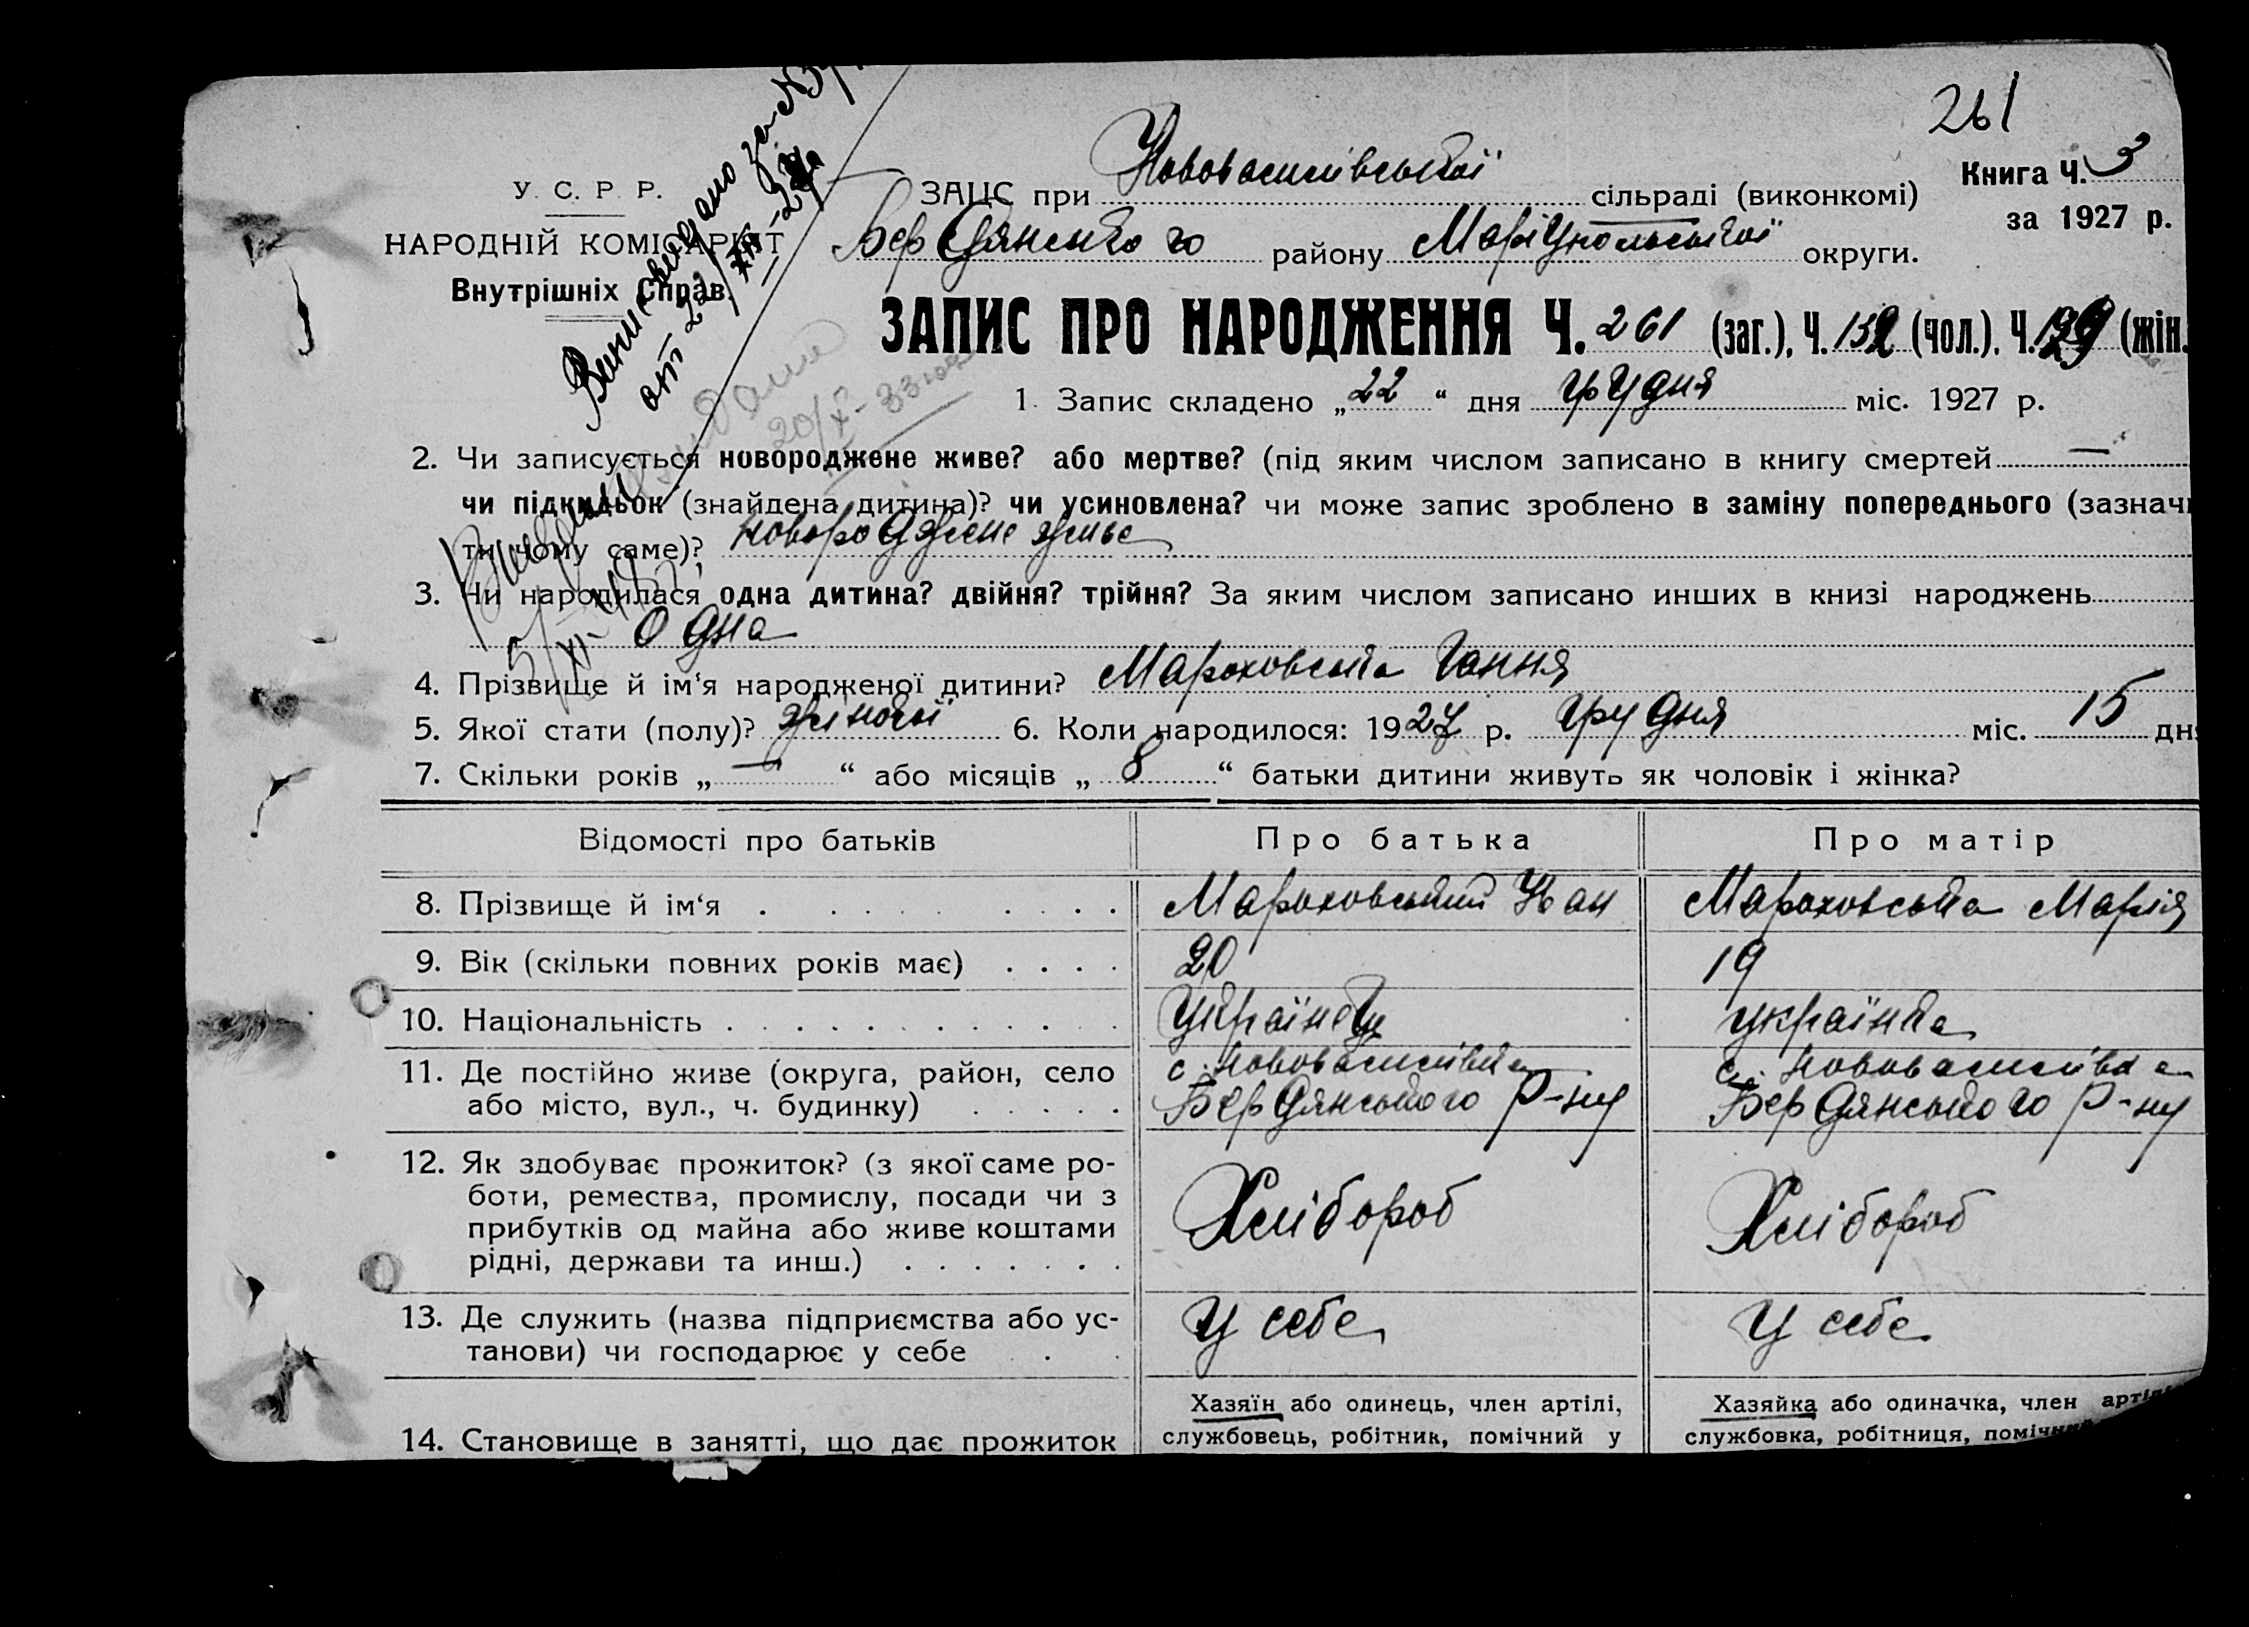 261
У. С. Р. Р.
НАРОДНІЙ КОМІСАРІЯТ
Внутрішніх Справ.
ЗАЦС при Нововасилівській сільраді (виконкомі)
Бердянського району Маріупольської округи.
Книга Ч. 3
за 1927 р.
от 22/XII-27р
ЗАПИС ПРО НАРОДЖЕННЯ Ч. 261 (заг.), Ч. 132 (чол.), Ч. 129 (жін.
1. Запис складено „22“ дня грудня міс. 1927 р.
20/X - 33 года
2. Чи записується новороджене живе? або мертве? (під яким числом записано в книгу смертей —
чи підкидьок (знайдена дитина)? чи усиновлена? чи може запис зроблено в заміну попереднього (зазначи
ти чому саме)? новороджене живе
3. Чи народилася одна дитина? двійня? трійня? За яким числом записано инших в книзі народжень
одна
4. Прізвище й ім‘я народженої дитини? Мароховська Гання
5. Якої стати (полу)? жіночої 6. Коли народилося: 1927 р. грудня міс. 15 дня
7. Скільки років „ — “ або місяців „ 8 “ батьки дитини живуть як чоловік і жінка?
Відомості про батьків Про батька Про матір
8. Прізвище й ім‘я Мароховський Іван Мароховська Марія
9. Вік (скільки повних років має) 20 19
10. Національність Українець українка
11. Де постійно живе (округа, район, село с. Нововасилівка с. Нововасилівка
або місто, вул., ч. будинку) Бердянського р-ну Бердянського р-ну
12. Як здобуває прожиток? (з якої саме ро-
боти, ремества, промислу, посади чи з Хлібороб Хлібороб
прибутків од майна або живе коштами
рідні, держави та инш.)
13. Де служить (назва підприємства або ус- У себе У себе
танови) чи господарює у себе
Хазяїн або одинець, член артілі, Хазяйка або одиначка, член артілі
14. Становище в занятті, що дає прожиток службовець, робітник, помічний у службовка, робітниця, помічний